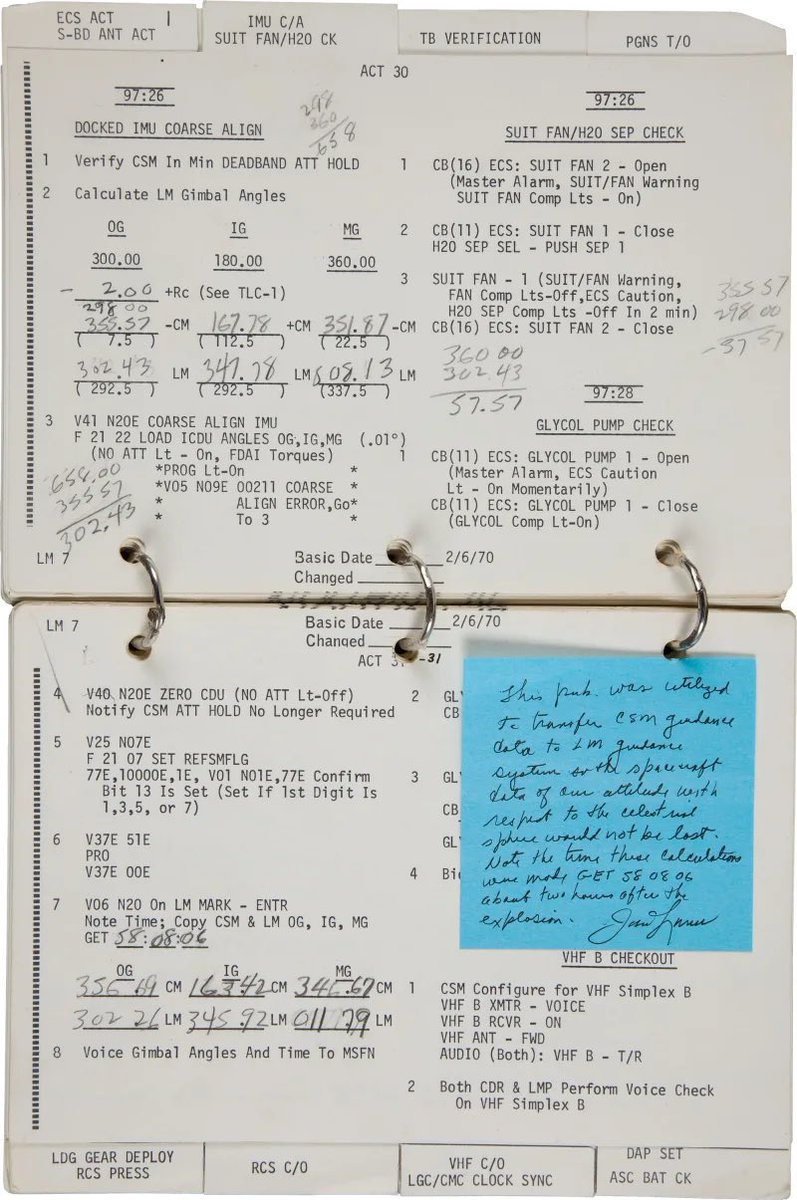 ECS ACT 1
S-BD ANT ACT
IMU C/A
SUIT FAN/H2O CK
TB VERIFICATION
PGNS T/O
ACT 30
97:26
298
360
658
DOCKED IMU COARSE ALIGN
1 Verify CSM In Min DEADBAND ATT HOLD
2 Calculate LM Gimbal Angles
OG IG MG
300.00 180.00 360.00
- 2.00 +Rc (See TLC-1)
298 00
355.57 -CM 167.78 +CM 351.87 -CM
( 7.5 ) (112.5 ) ( 22.5 )
302.43 LM 347.78 LM 008.13 LM
( 292.5 ) ( 292.5 ) (337.5 )
3 V41 N20E COARSE ALIGN IMU
F 21 22 LOAD ICDU ANGLES OG,IG,MG (.01°)
(NO ATT Lt - On, FDAI Torques)
*PROG Lt-On *
*V05 N09E 00211 COARSE *
* ALIGN ERROR,Go*
* To 3 *
658.00
355 57
302.43
97:26
SUIT FAN/H2O SEP CHECK
1 CB(16) ECS: SUIT FAN 2 - Open
(Master Alarm, SUIT/FAN Warning
SUIT FAN Comp Lts - On)
2 CB(11) ECS: SUIT FAN 1 - Close
H2O SEP SEL - PUSH SEP 1
3 SUIT FAN - 1 (SUIT/FAN Warning,
FAN Comp Lts-Off,ECS Caution,
H2O SEP Comp Lts -Off In 2 min)
CB(16) ECS: SUIT FAN 2 - Close
355 57
298 00
-57 57
360 00
302.43
57.57
97:28
GLYCOL PUMP CHECK
1 CB(11) ECS: GLYCOL PUMP 1 - Open
(Master Alarm, ECS Caution
Lt - On Momentarily)
CB(11) ECS: GLYCOL PUMP 1 - Close
(GLYCOL Comp Lt-On)
LM 7
Basic Date 2/6/70
Changed
LM 7
Basic Date 2/6/70
Changed
ACT 31 -31
4 V40 N20E ZERO CDU (NO ATT Lt-Off)
Notify CSM ATT HOLD No Longer Required
5 V25 N07E
F 21 07 SET REFSMFLG
77E,10000E,1E, V01 N01E,77E Confirm
Bit 13 Is Set (Set If 1st Digit Is
1,3,5, or 7)
6 V37E 51E
PRO
V37E 00E
7 V06 N20 On LM MARK - ENTR
Note Time; Copy CSM & LM OG, IG, MG
GET 58:08:06
OG IG MG
356 69 CM 163 42 CM 346.67 CM
302 26 LM 345.92 LM 011 79 LM
8 Voice Gimbal Angles And Time To MSFN
2 GL
CB
3 GL
CB
GL
4 Bi
This pub. was utilized
to transfer CSM guidance
data to LM guidance
system so the spacecraft
data of our attitude with
respect to the celestrial
sphere would not be lost.
Note the time these calculations
were made GET 58 08 06
about two hours after the
explosion.
VHF B CHECKOUT
1 CSM Configure for VHF Simplex B
VHF B XMTR - VOICE
VHF B RCVR - ON
VHF ANT - FWD
AUDIO (Both): VHF B - T/R
2 Both CDR & LMP Perform Voice Check
On VHF Simplex B
LDG GEAR DEPLOY
RCS PRESS
RCS C/O
VHF C/O
LGC/CMC CLOCK SYNC
DAP SET
ASC BAT CK